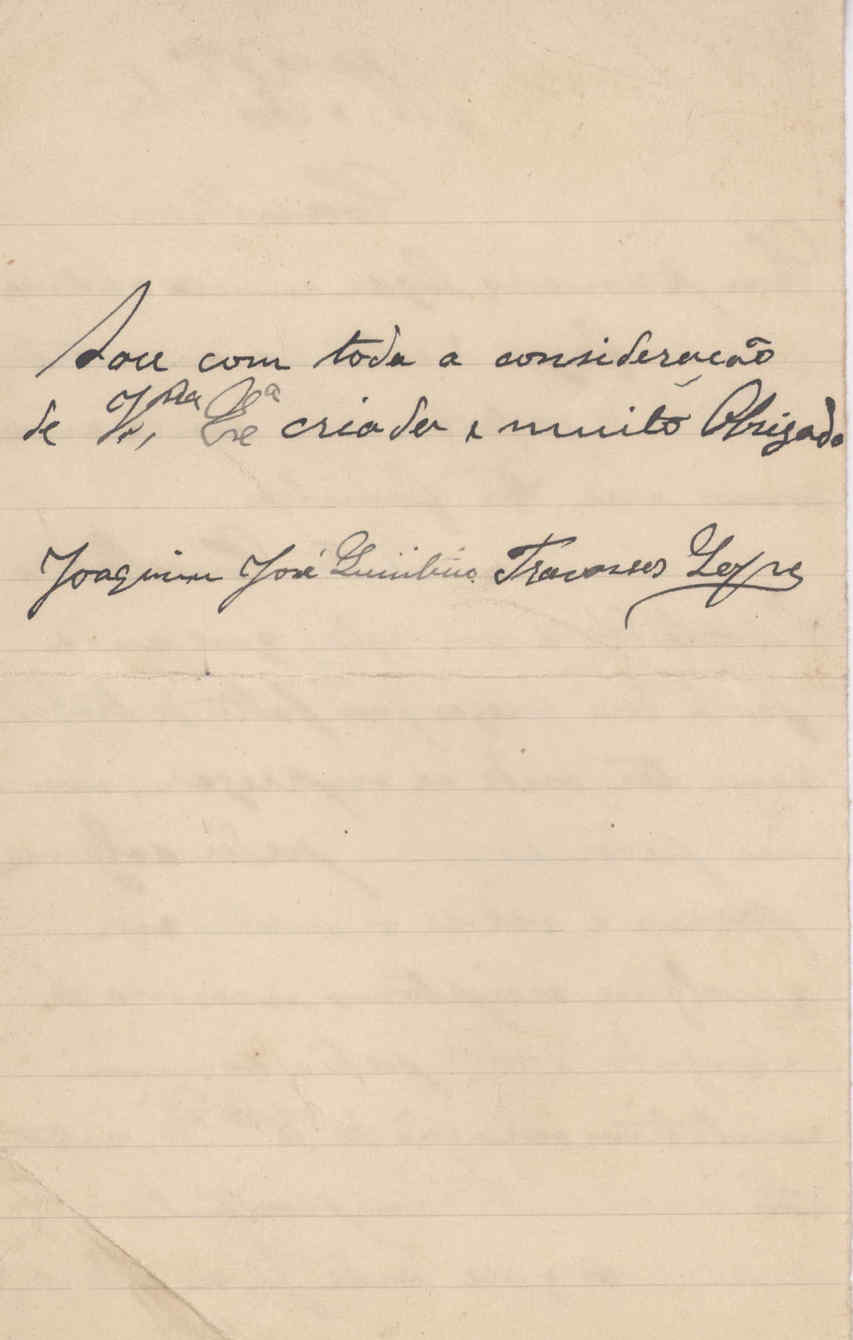 Sou com toda a consideração
de V. Exª criado e muito Obrigado
Joaquim José Travassos Lopes